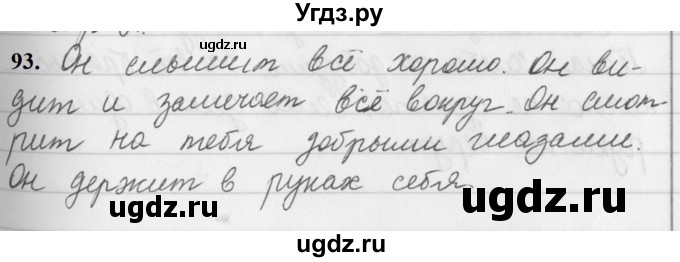 Угдз.ру
ugdz.ru
93. Он слышит всё хорошо. Он ви-
дит и замечает всё вокруг. Он смот-
рит на тебя добрыми глазами.
Он держит в руках себя.
ugdz.ru
ugdz.ru
ugdz.ru